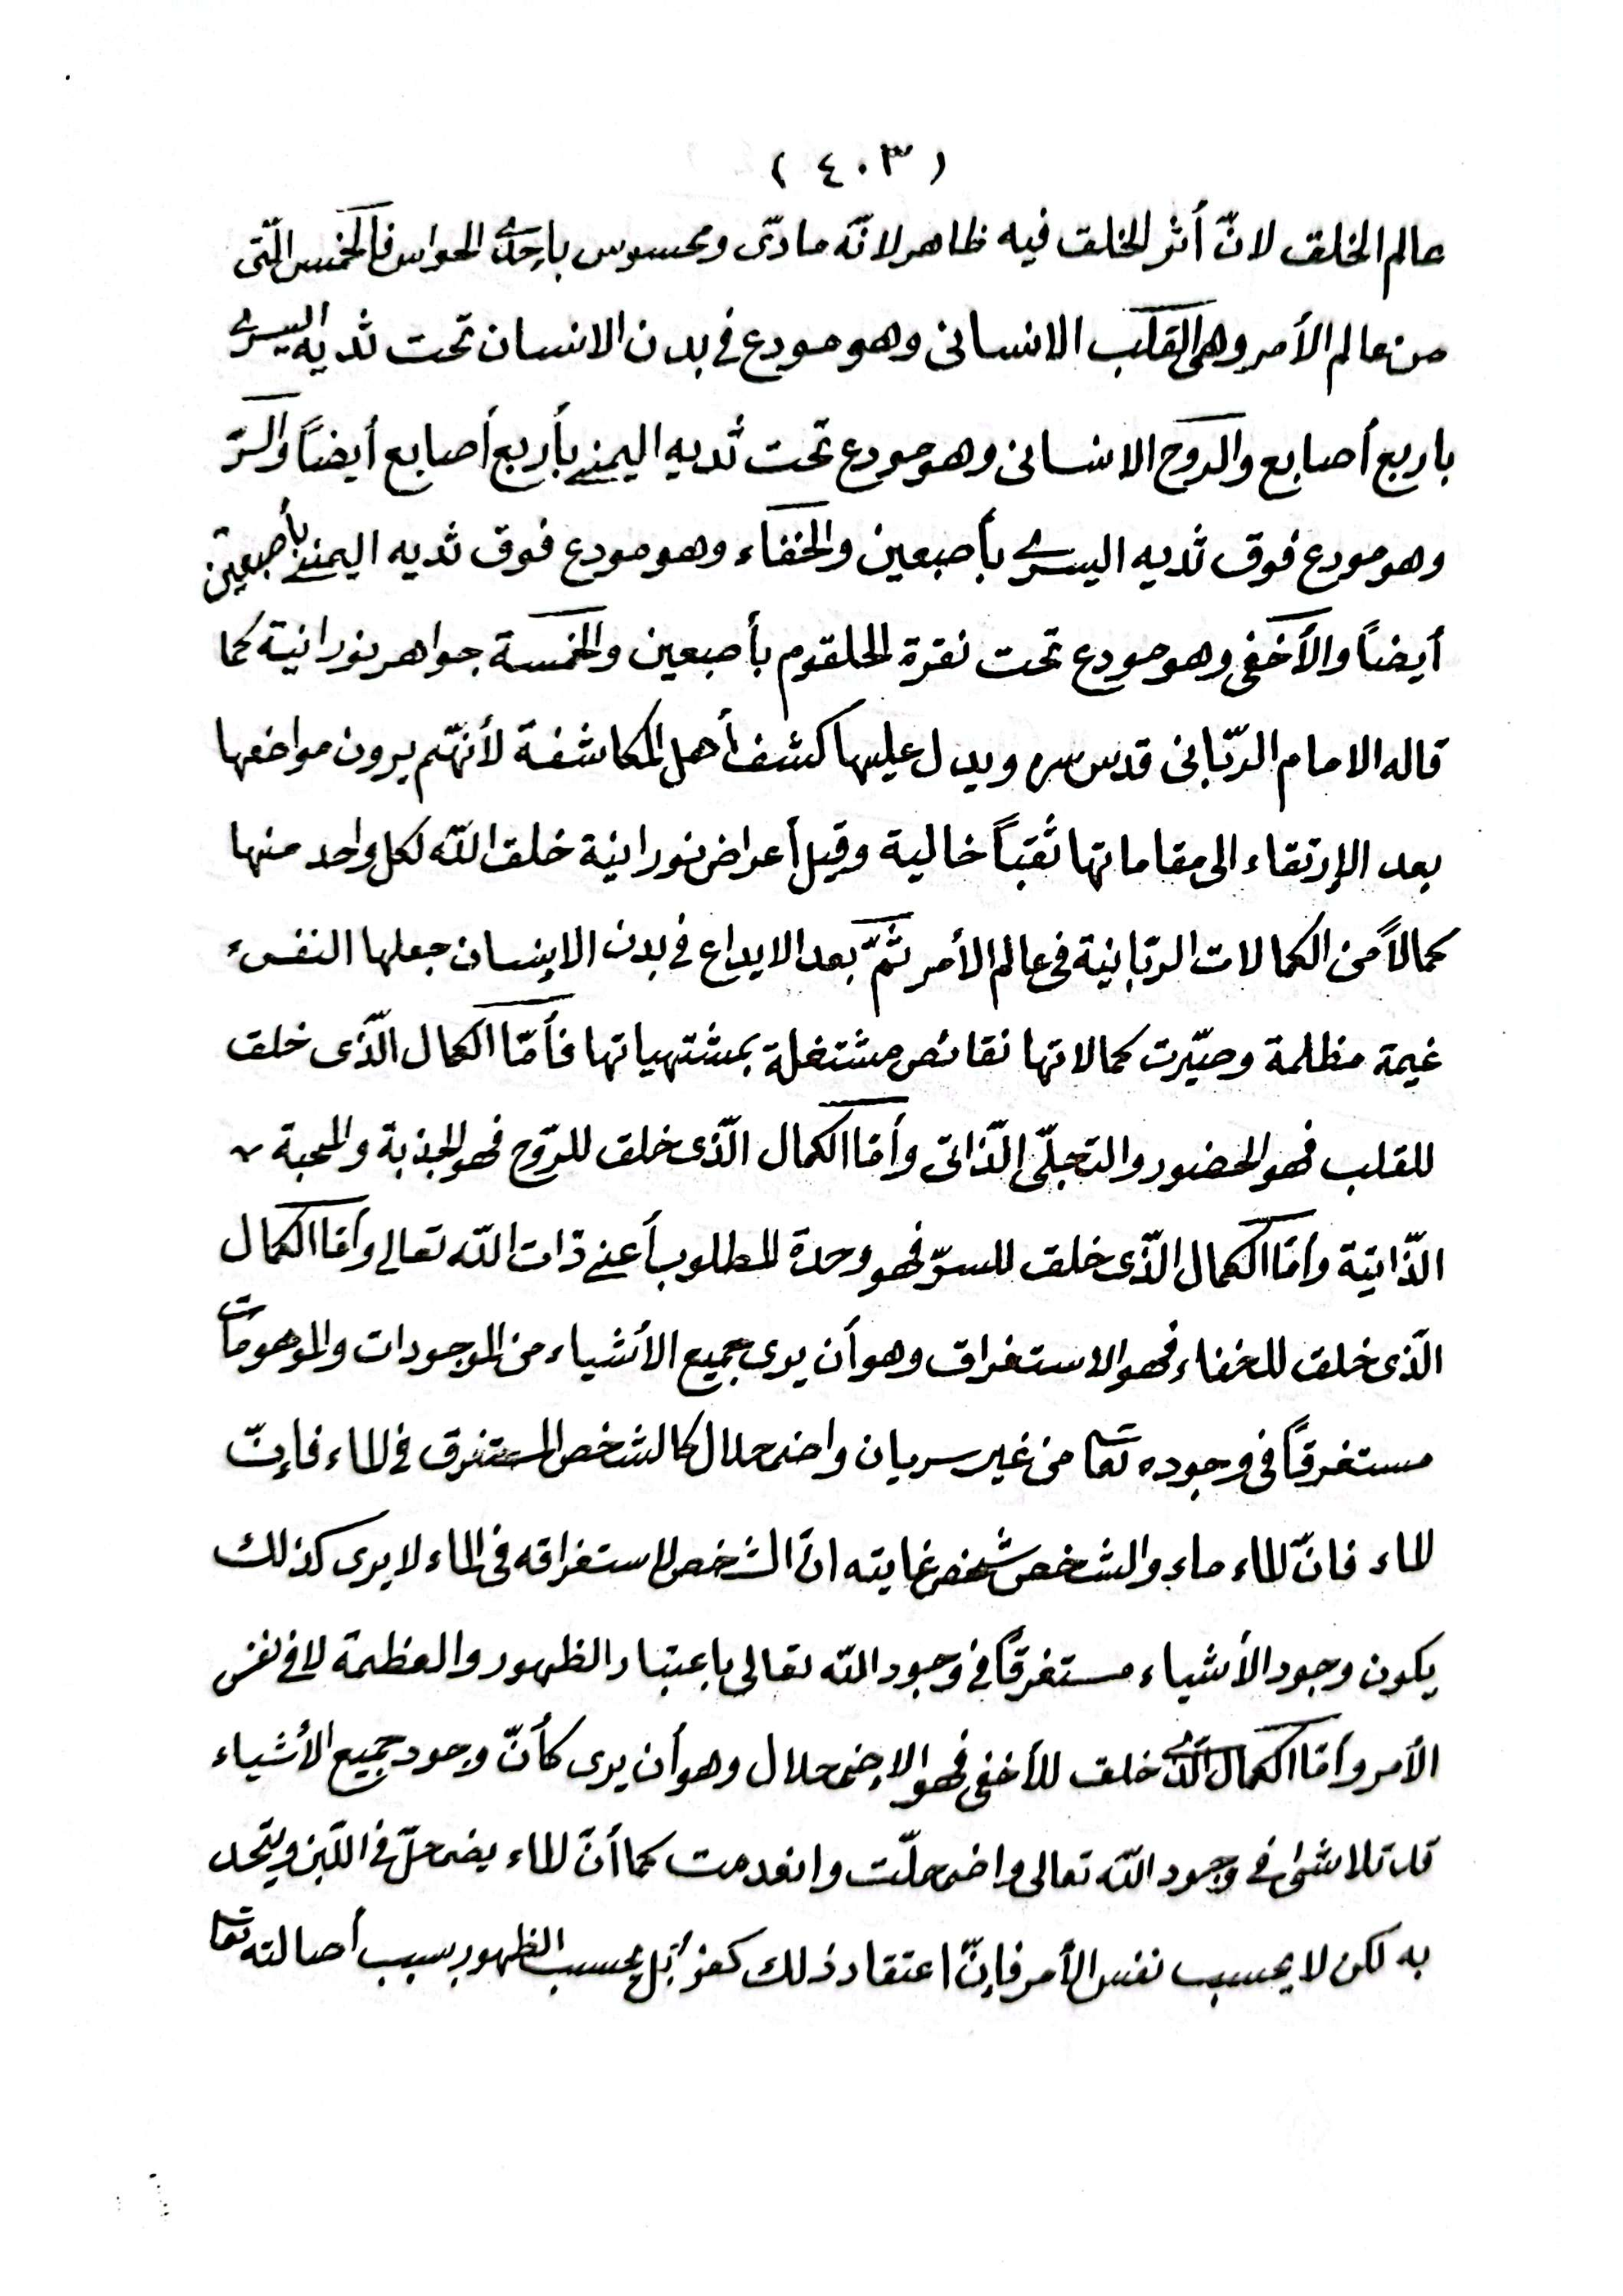 (٤٠٣)
عالم الخلق لانّ أثر الخلق فيه ظاهر لانّه مادّى ومحسوس باحدى الحواس فالخمس الّتى
من عالم الأمر وهى القلب الانسانى وهو مودع فى بدن الانسان تحت ثديه اليسرى
باربع أصابع والرّوح الانسانى وهو مودع تحت ثديه اليمنى بأربع أصابع أيضاً والسّرّ
وهو مودع فوق ثديه اليسرى بأصبعين والخفاء وهو مودع فوق ثديه اليمنى بأصبعين
أيضاً والأخفى وهو مودع تحت نقرة الحلقوم بأصبعين والخمسة جواهر نورانية كما
قاله الامام الربّانى قدس سره ويدل عليها كشف أهل المكاشفة لأنهّم يرون مواضعها
بعد الإرتقاء الى مقاماتها ثقباً خالية وقيل أعراض نورانية خلق اللّه لكل واحد منها
كمالاً من الكمالات الربّانية فى عالم الأمر ثمّ بعد الايداع فى بدن الانسان جعلها النفس
غيمة مظلمة وصيّرت كمالاتها نقائص مشتغلة بمشتهياتها فأمّا الكمال الّذى خلق
للقلب فهو الحضور والتجلّى الذّاتى وأمّا الكمال الّذى خلق للرّوح فهو الجذبة والمحبة
الذّاتيّة وأمّا الكمال الّذى خلق للسرّ فهو وحدة المطلوب أعنى ذات اللّه تعالى وأمّا الكمال
الّذى خلق للخفاء فهو الاستغراق وهو أن يرى جميع الأشياء من الموجودات والموهومات
مستغرقاً فى وجوده تعا من غير سريان واضمحلال كالشخص المستغرق فى الماء فإنّ
الماء فانّ الماء ماء والشخص شخص غايته انّ الشخص لاستغراقه فى الماء لا يرى كذلك
يكون وجود الأشياء مستغرقاً فى وجود اللّه تعالى باعتبار الظهور والعظمة لا فى نفس
الأمر وأمّا الكمال الّذى خلق للأخفى فهو الاضمحلال وهو أن يرى كأنّ وجود جميع الأشياء
قد تلاشى فى وجود اللّه تعالى واضمحلّت وانعدمت كما أنّ الماء يضمحلّ فى اللّبن ويتّحد
به لكن لا بحسب نفس الأمر فإنّ اعتقاد ذلك كفر بل بحسب الظهور بسبب أصالته تعا